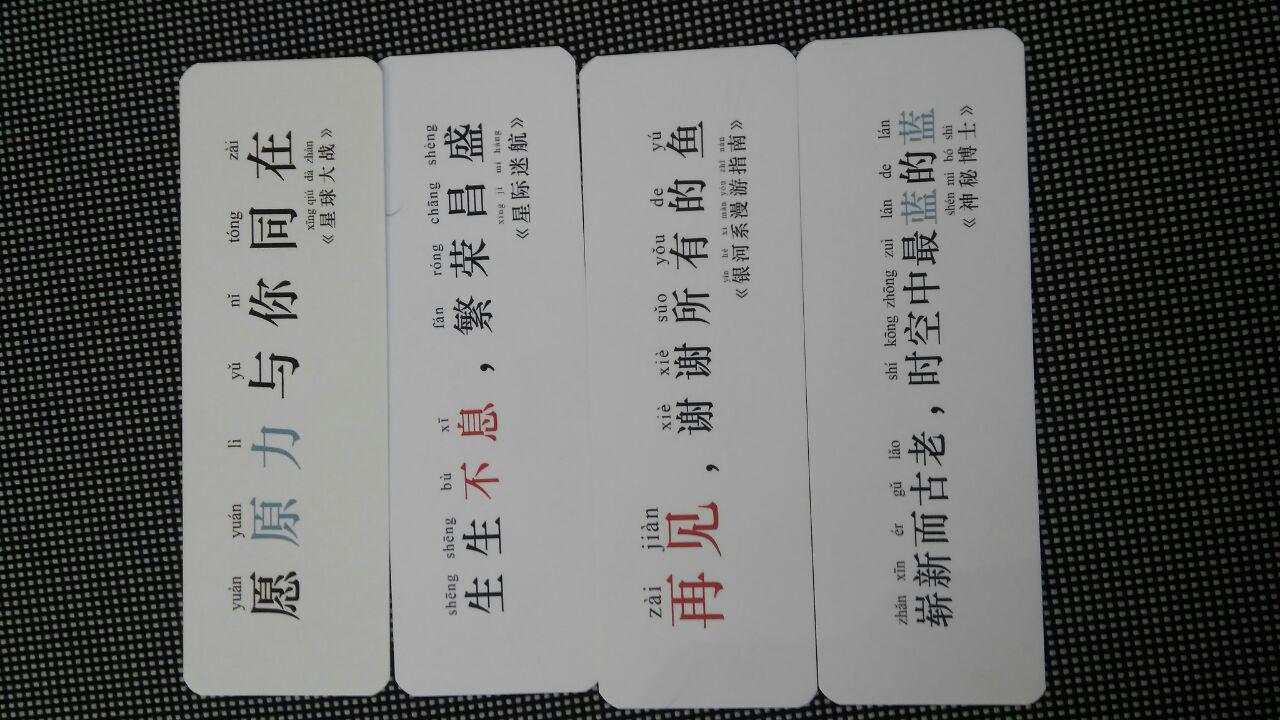 yuàn yuán lì yǔ nǐ tóng zài
愿原力与你同在
xīng qiú dà zhàn
《星球大战》
shēng shēng bù xī fán róng chāng shèng
生生不息，繁荣昌盛
xīng jì mí háng
《星际迷航》
zài jiàn xiè xiè sǔo yǒu de yú
再见，谢谢所有的鱼
yín hé xì màn yóu zhǐ nán
《银河系漫游指南》
zhǎn xīn ér gǔ lǎo shí kōng zhōng zuì lán de lán
崭新而古老，时空中最蓝的蓝
shén mì bó shì
《神秘博士》